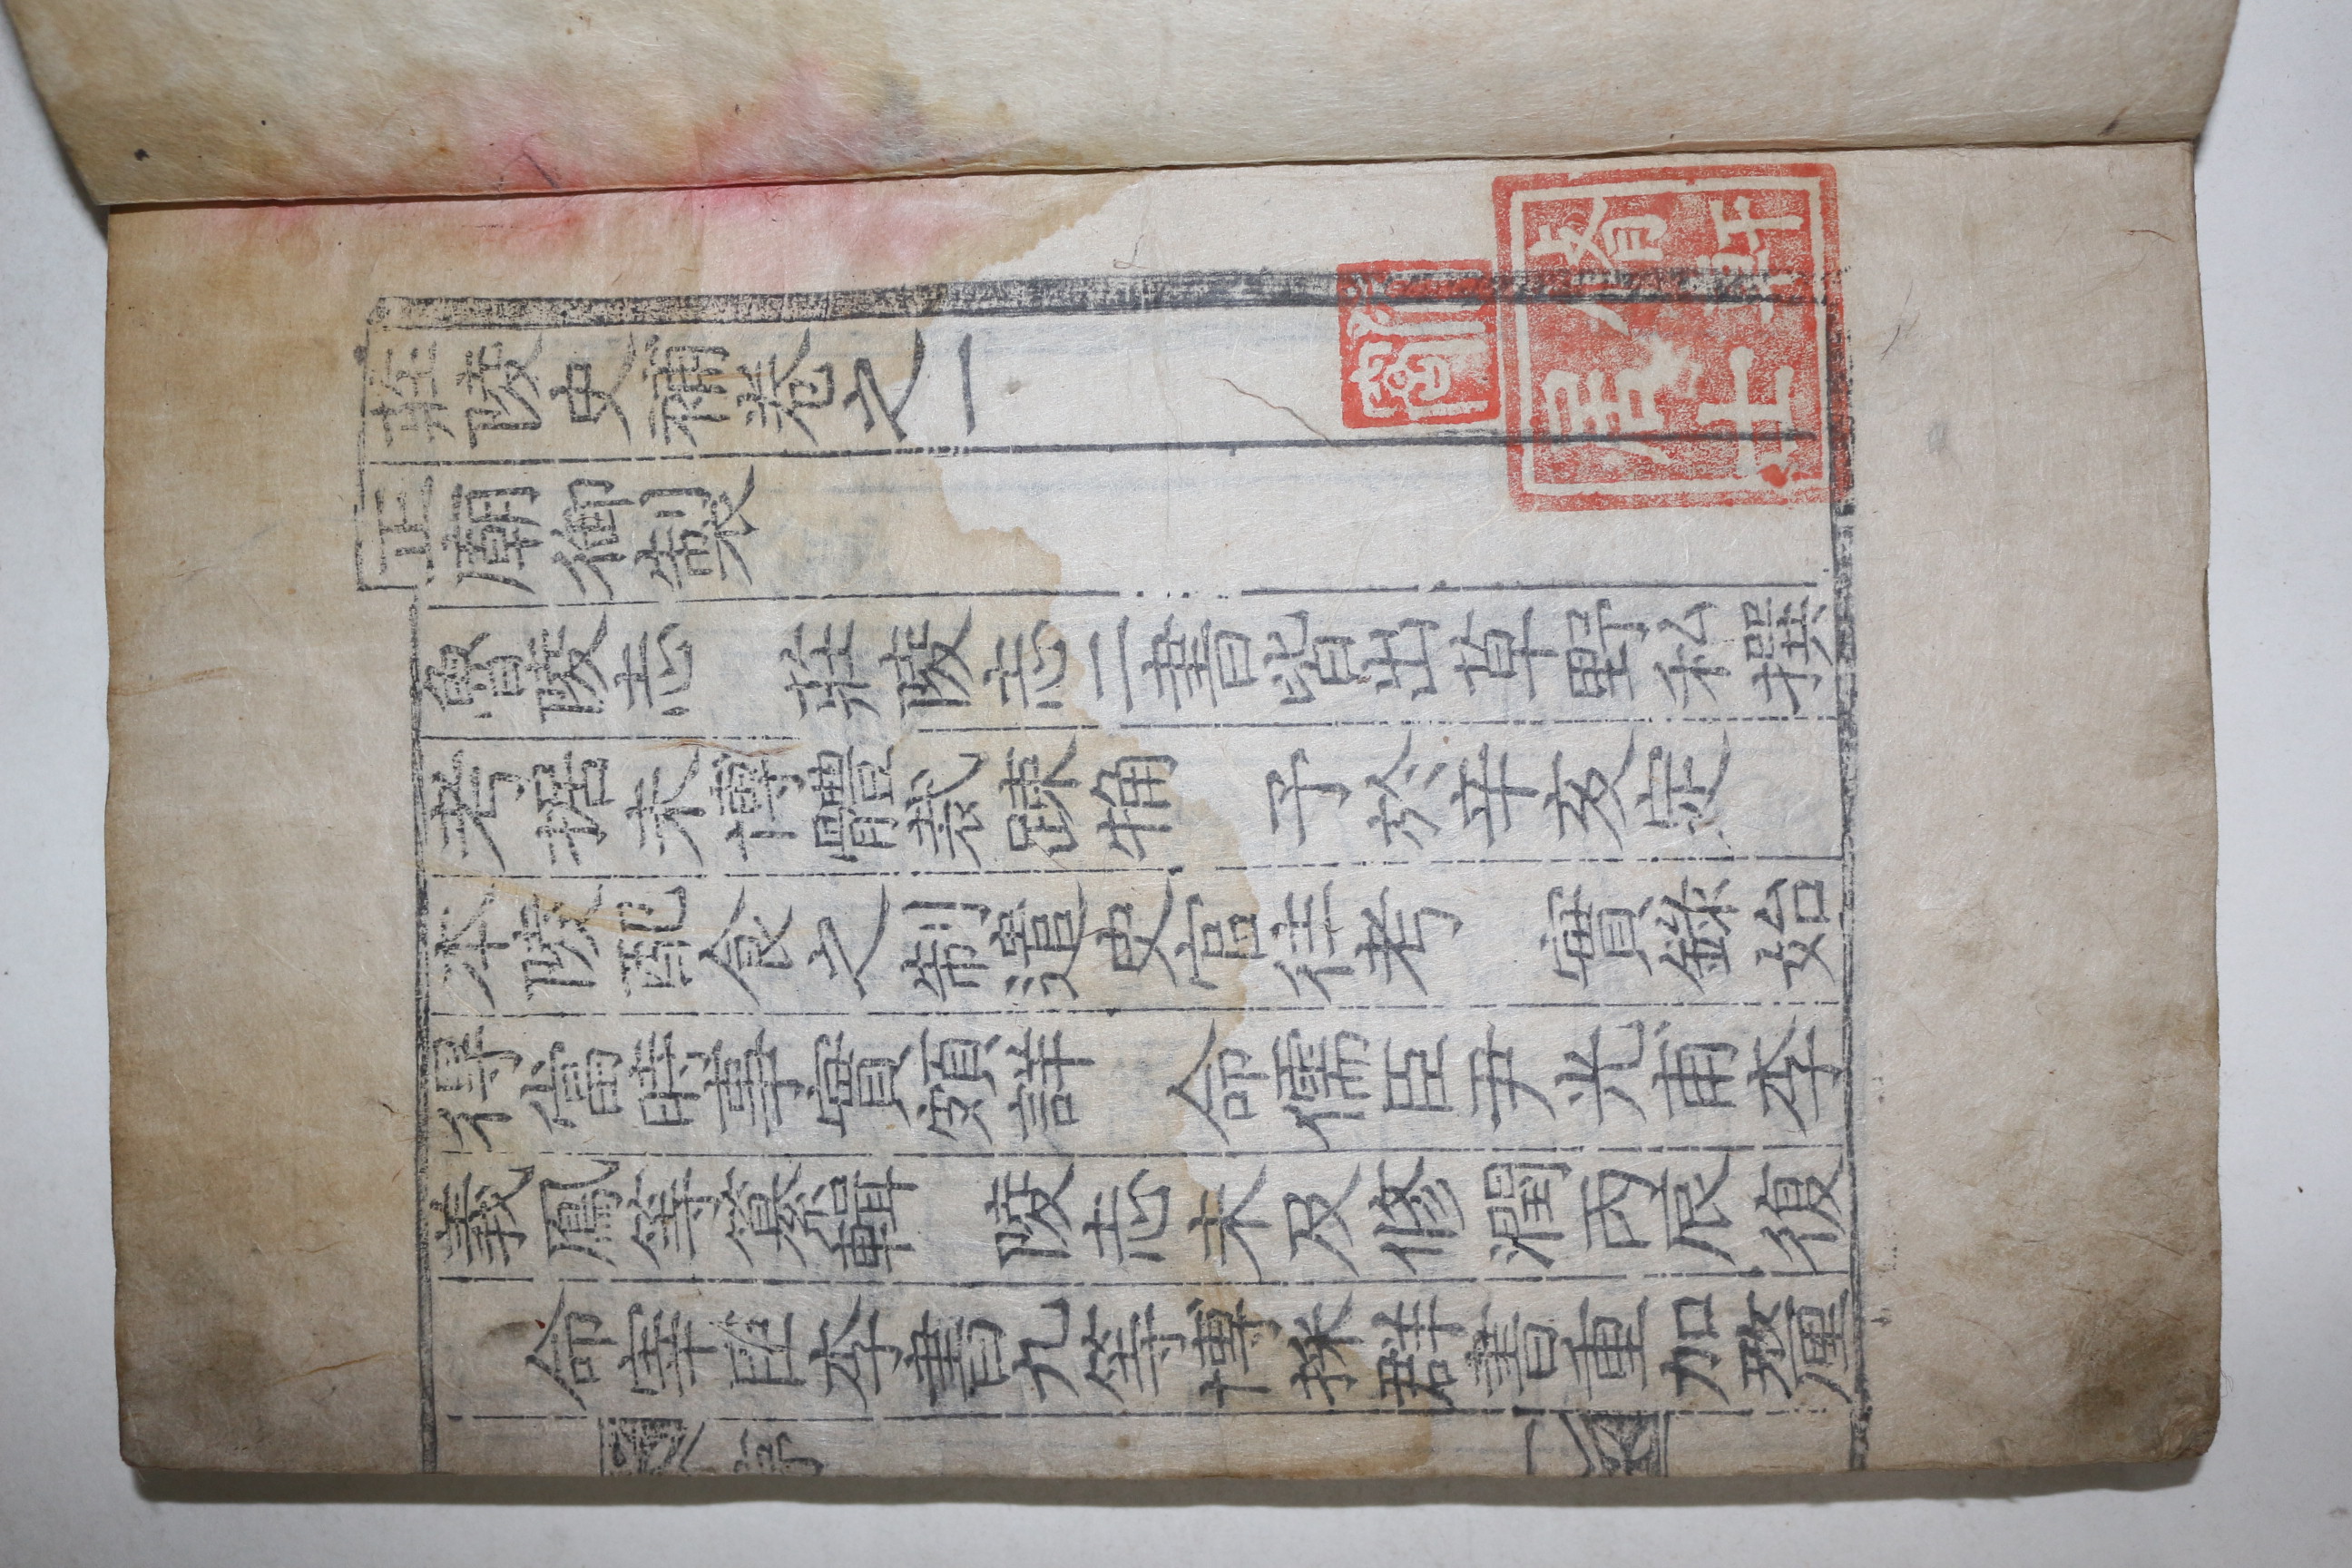 莊陵史補卷之一
正廟御製
魯陵志　莊陵志二書皆出草野私撰
考据未博體裁踈觕　予於辛亥定
本陵配食之制遣史官往考　實錄始
得當時事實頗詳　命儒臣尹光甫李
義鳳等纂輯　陵志未及修潤丙辰復
命宰臣李書九等博採群書重加釐